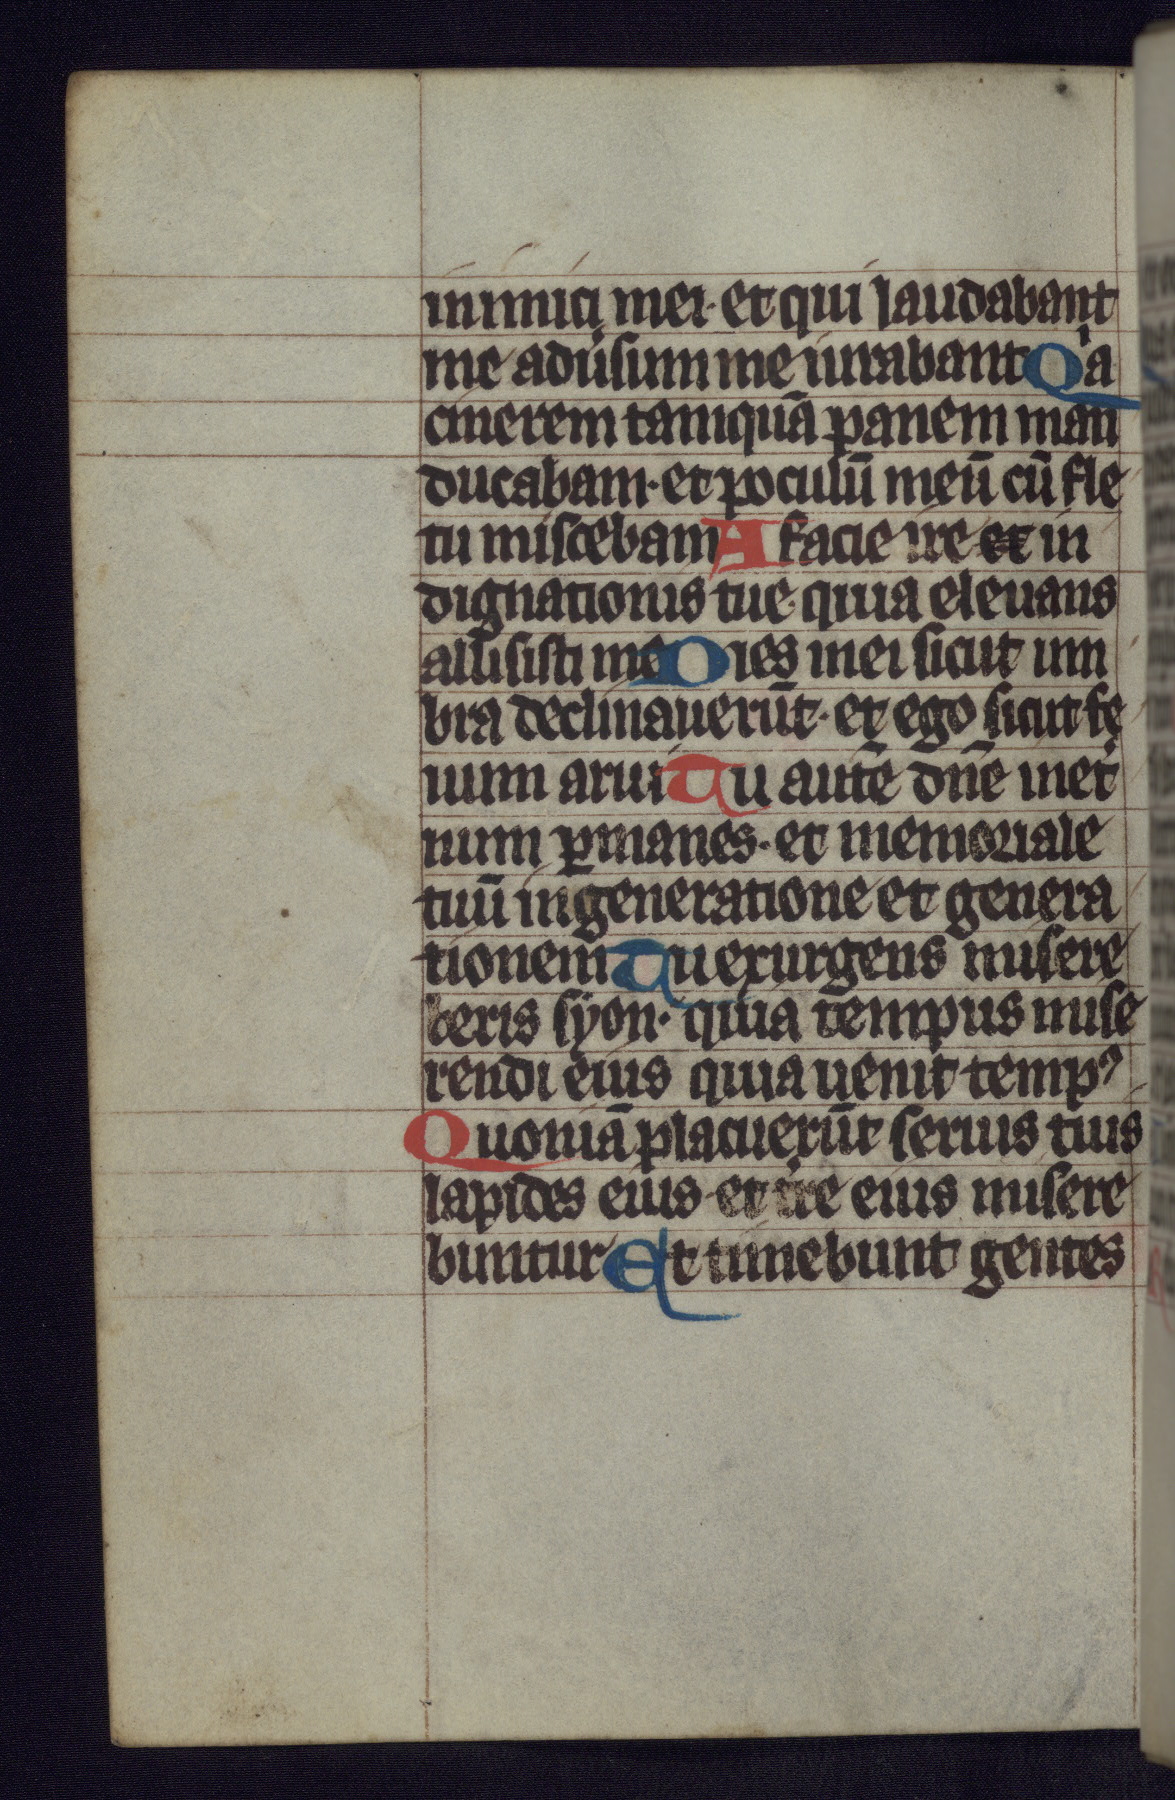 inimici mei. et qui laudabant
me aduˢsum me iurabant Qⁱa
cinerem tamquā panem man
ducabam. et poculū meū cū fle
tu miscebam A facie ire et in
dignationis tue quia eleuans
allisisti me Dies mei sicut um
bra declinauerūt. et ego sicut fe
num arui Tu autē dn̄e in et̾
num ꝑmanes. et memoriale
tuū in generatione et genera
tionem Tu exurgens misere
beris syon. quia tempus mise
rendi eius quia uenit tempꝰ
Quoniā placuerūt seruis tuis
lapides eius et tʳre eius misere
buntur Et timebunt gentes